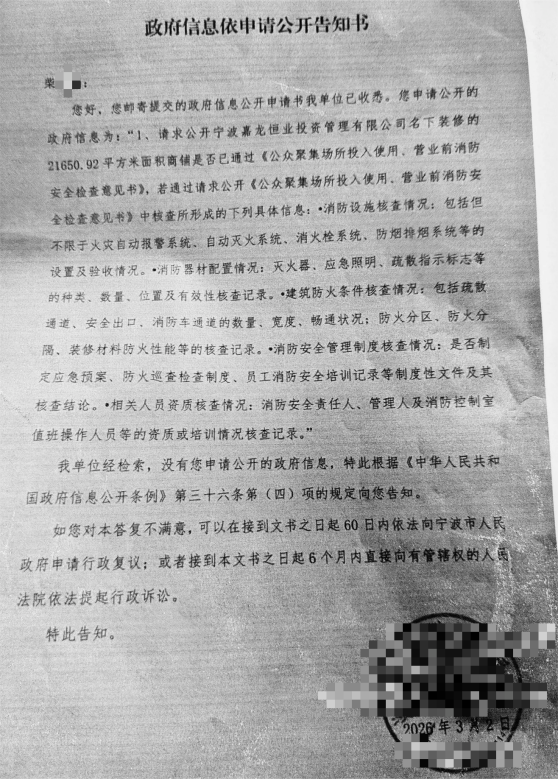 政府信息依申请公开告知书
柴 :
您好,您邮寄提交的政府信息公开申请书我单位已收悉。您申请公开的
政府信息为:“1、请求公开宁波嘉龙恒业投资管理有限公司名下装修的
21650.92 平方米面积商铺是否已通过《公众聚集场所投入使用、营业前消防
安全检查意见书》,若通过请求公开《公众聚集场所投入使用、营业前消防安
全检查意见书》中核查所形成的下列具体信息:•消防设施核查情况:包括但
不限于火灾自动报警系统、自动灭火系统、消火栓系统、防烟排烟系统等的
设置及验收情况。•消防器材配置情况:灭火器、应急照明、疏散指示标志等
的种类、数量、位置及有效性核查记录。•建筑防火条件核查情况:包括疏散
通道、安全出口、消防车通道的数量、宽度、畅通状况;防火分区、防火分
隔、装修材料防火性能等的核查记录。•消防安全管理制度核查情况:是否制
定应急预案、防火巡查检查制度、员工消防安全培训记录等制度性文件及其
核查结论。•相关人员资质核查情况:消防安全责任人、管理人及消防控制室
值班操作人员等的资质或培训情况核查记录。”
我单位经检索,没有您申请公开的政府信息,特此根据《中华人民共和
国政府信息公开条例》第三十六条第(四)项的规定向您告知。
如您对本答复不满意,可以在接到文书之日起 60 日内依法向宁波市人民
政府申请行政复议;或者接到本文书之日起 6 个月内直接向有管辖权的人民
法院依法提起行政诉讼。
特此告知。
2026 年 3 月 2 日